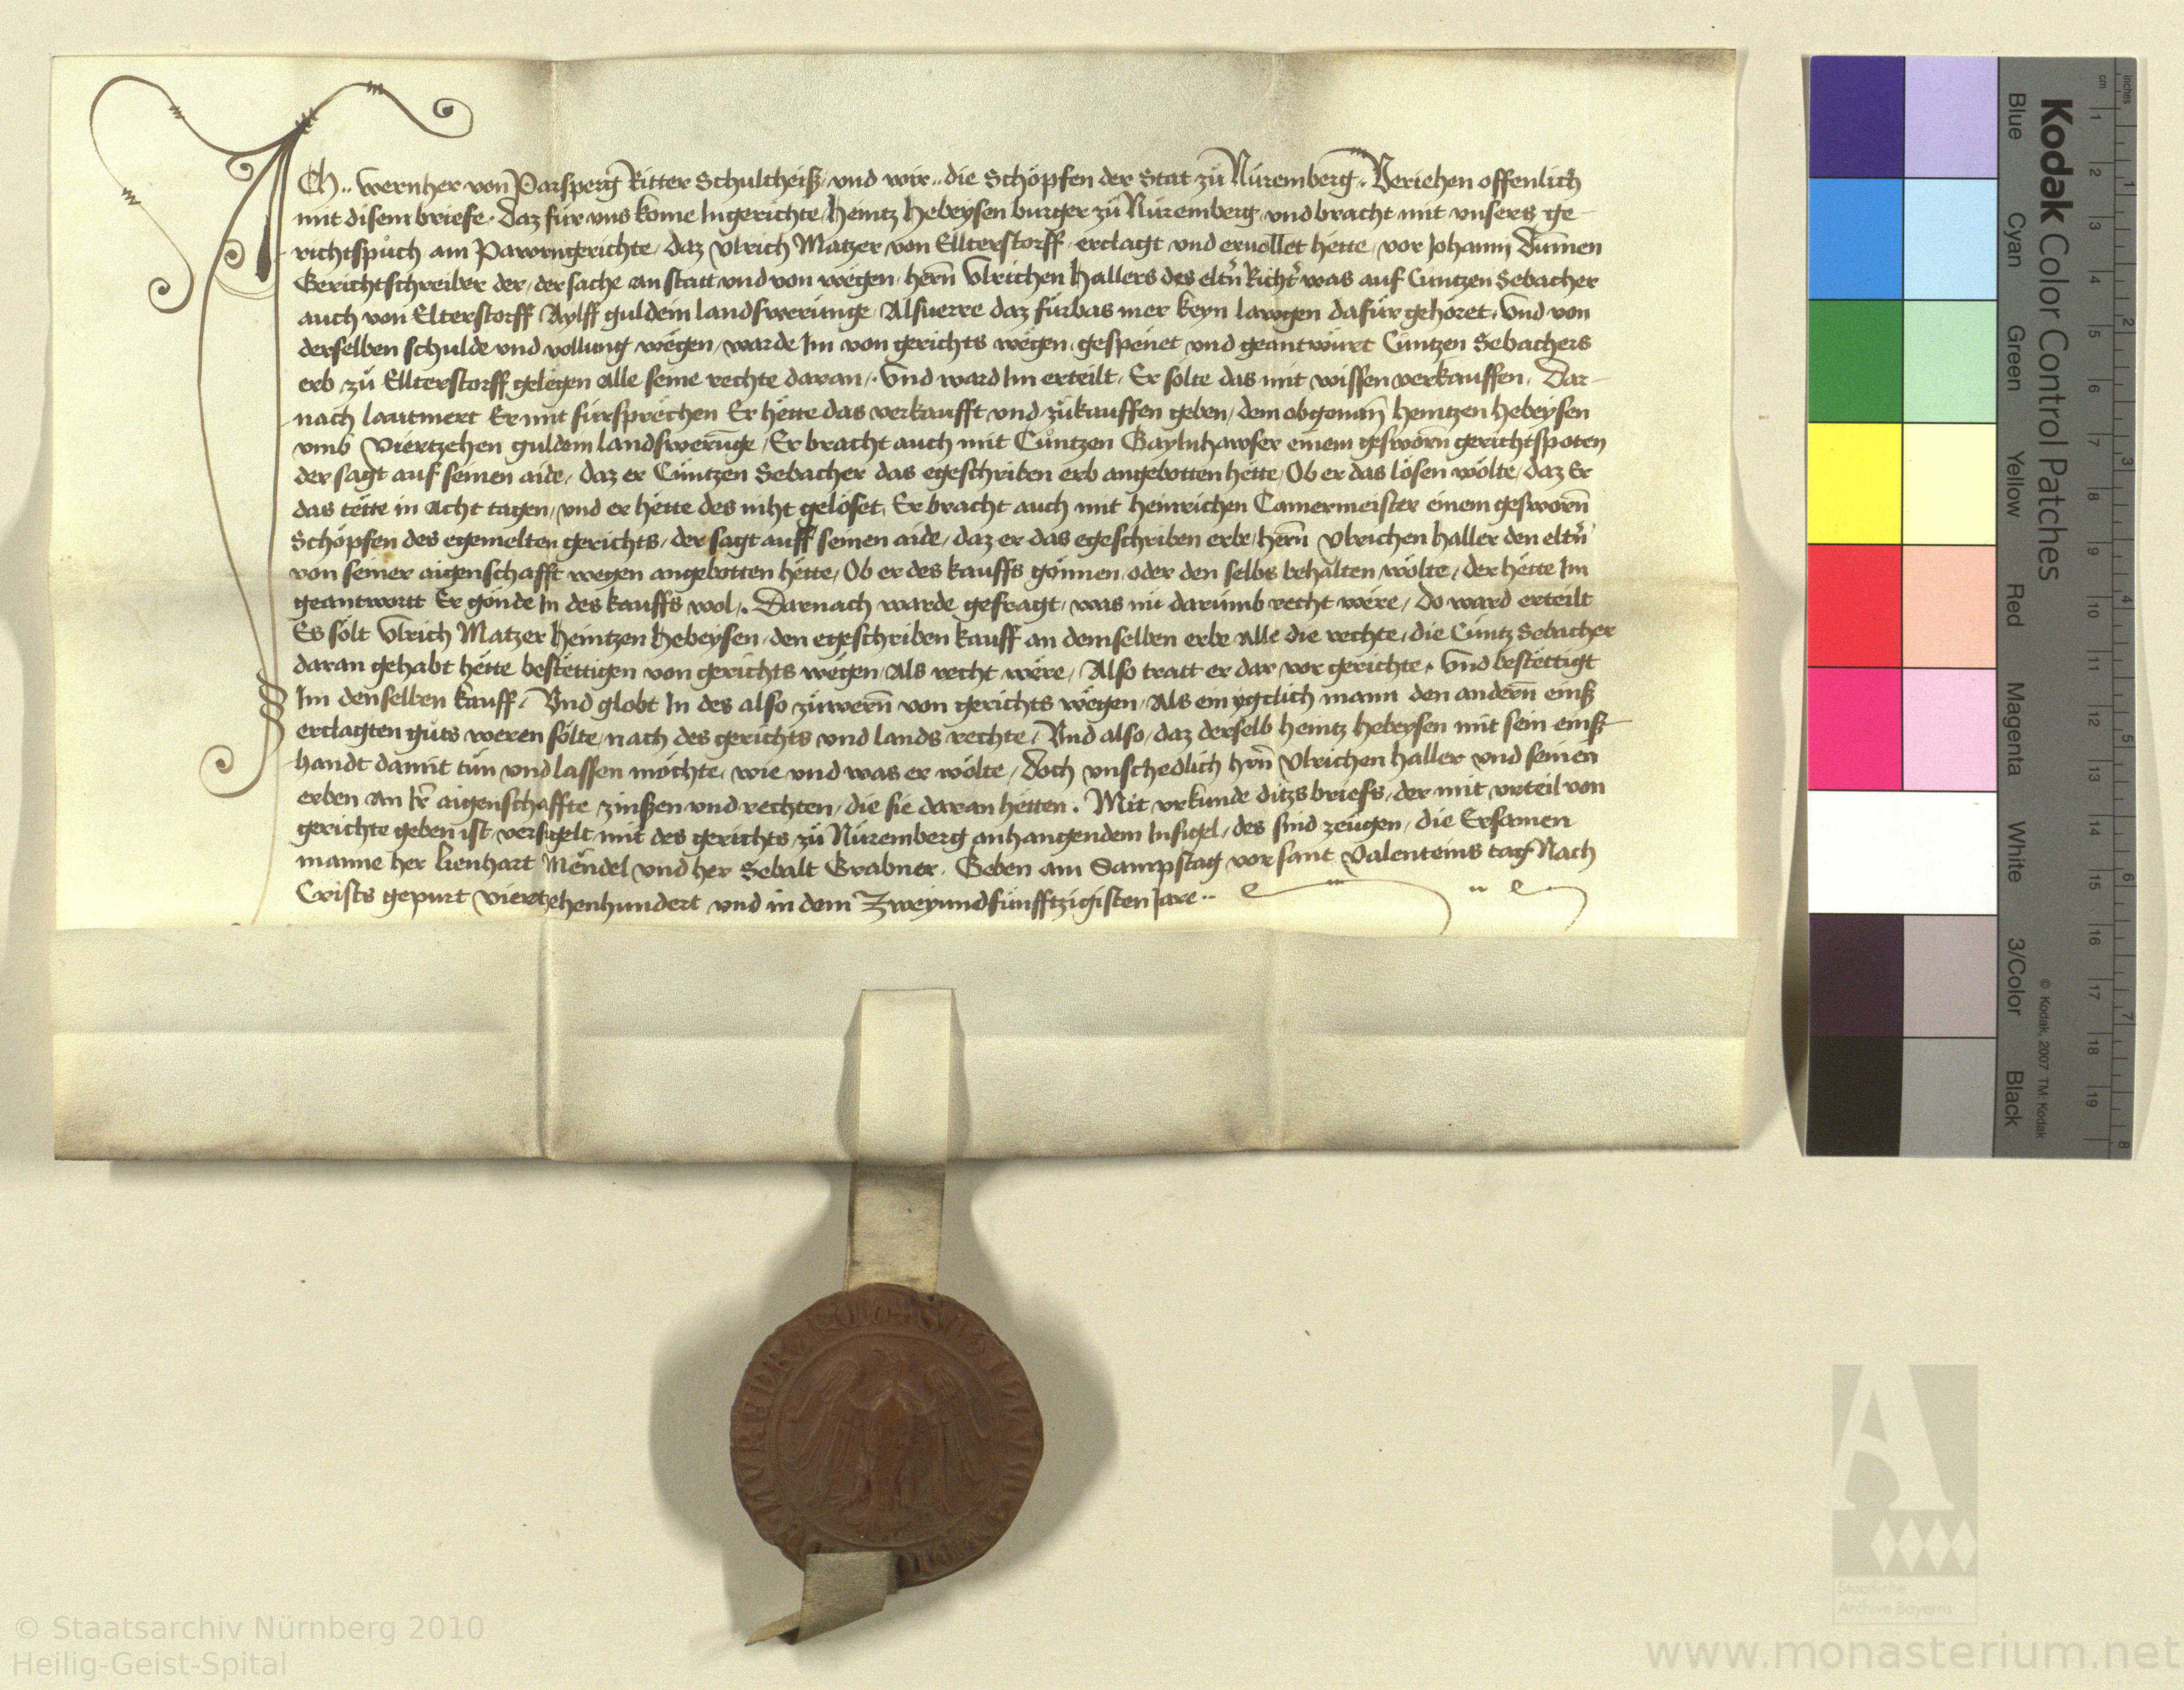 ICh .. wernher von Parsperg Ritter Schultheiß / und wir .. die Schöpfen der Stat zů Nüremberg . Veriehen offenlich
mit disem briefe . daz für uns kome In gerichte / Heintz Hebeysen burger zů Nüremberg / und bracht mit unsers ge-
richtspůch am Pawrngerichte / daz Ulrich Matzer von Ellterstorff / erclagt und ervollet hette / vor Johanni
Gerichtschreiber der / der sache an statt und von wegen / herñ Ulrichen Hallers des eltñ Richtˀ was auf Cuntzen Sebacher
auch von Elterstorff Aylff guldein landswerunge / Alsverre daz fürbas mer keyn lawgen dafür gehöret / Und von
derselben schulde und vollung wegen / warde Im von gerichts wegen / gespenet und geantwurt Cuntzen Sebachers
erb / zů Ellterstorff gelegen alle seine rechte daran / . Und ward Im erteilt / Er solte das mit wissen verkauffen / Dar-
nach lautmert Er mit fürsprechen Er hette das verkaufft und zůkauffen geben / dem obgenanñ Heintzen Hebeysen
umb viertzehen guldein landswerũge / Er bracht auch mit Cůntzen Gaylnhawser einem gesworñ gerichtspoten
der sagt auf seinen aide / daz er Cuntzen Sebacher das egeschriben erb angebotten hette / Ob er das lösen wölte / daz Er
das tette in Acht tagen / und er hette des niht gelöset / Er bracht auch mit Heinrichen Camermeister einem gesworñ
Schöpfen des egemelten gerichts / der sagt auff seinen aide / daz er das egeschriben erbe / herñ Ulrichen Haller den eltñ
von seiner aigenschafft wegen angebotten hette / Ob er des kauffs gönnen / oder den selbs behalten wölte / der hette Im
geantwortt Er gönde In des kauffs wol / . Darnach warde gefragt / was nu darumb recht were / Do ward erteilt
Es sölt Ulrich Matzer Heintzen Hebeysen / den egeschriben kauff an demselben erbe Alle die rechte / die Cuntz Sebacher
daran gehabt hette bestettigen von gerichts wegen / Als recht were / Also tratt er dar vor gerichte . Und bestettigt
Im denselben kauff / Und globt In des also zůwerñ von gerichts wegen / Als ein ygclich mann den anderñ einß
erclagten gůts weren sölte / nach des gerichts und lands rechte / Und also / daz derselb Heintz Hebeysen mit sein einß
handt damit tůn und lassen möchte / wie und was er wölte / doch unschedlich hrñ Ulrichen Haller und seinen
erben An Irˀ aigenschaffte zinßen und rechten / die sie daran hetten . Mit urkunde ditzs briefs / der mit urteil von
gerichte geben ist / versigelt mit des gerichts zů Nüremberg anhangendem Insigel / des sind zeugen / die Ersamen
manne her Lienhart Mendel und her Sebalt Grabner . Geben am Sampstag vor sant Valenteins tag Nach
Crists gepurt viertzehenhundert und in dem Zweyundfünfftzigisten Jare ..
Kodak Color Control Patches
Blue Cyan Green Yellow Red Magenta White 3/Color Black
© Kodak, 2007 TM: Kodak
cm 1 2 3 4 5 6 7 8 9 10 11 12 13 14 15 16 17 18 19
inches 1 2 3 4 5 6 7 8
© Staatsarchiv Nürnberg 2010
Heilig-Geist-Spital
Staatliche
Archive Bayerns
www.monasterium.net